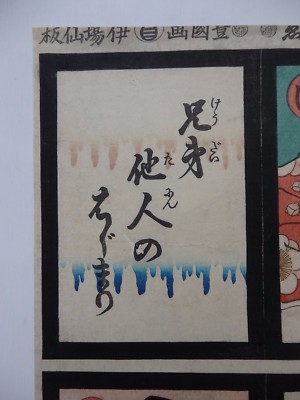 豊國画 伊場仙板
兄弟
けうだい
他人の
たにん
はじまり